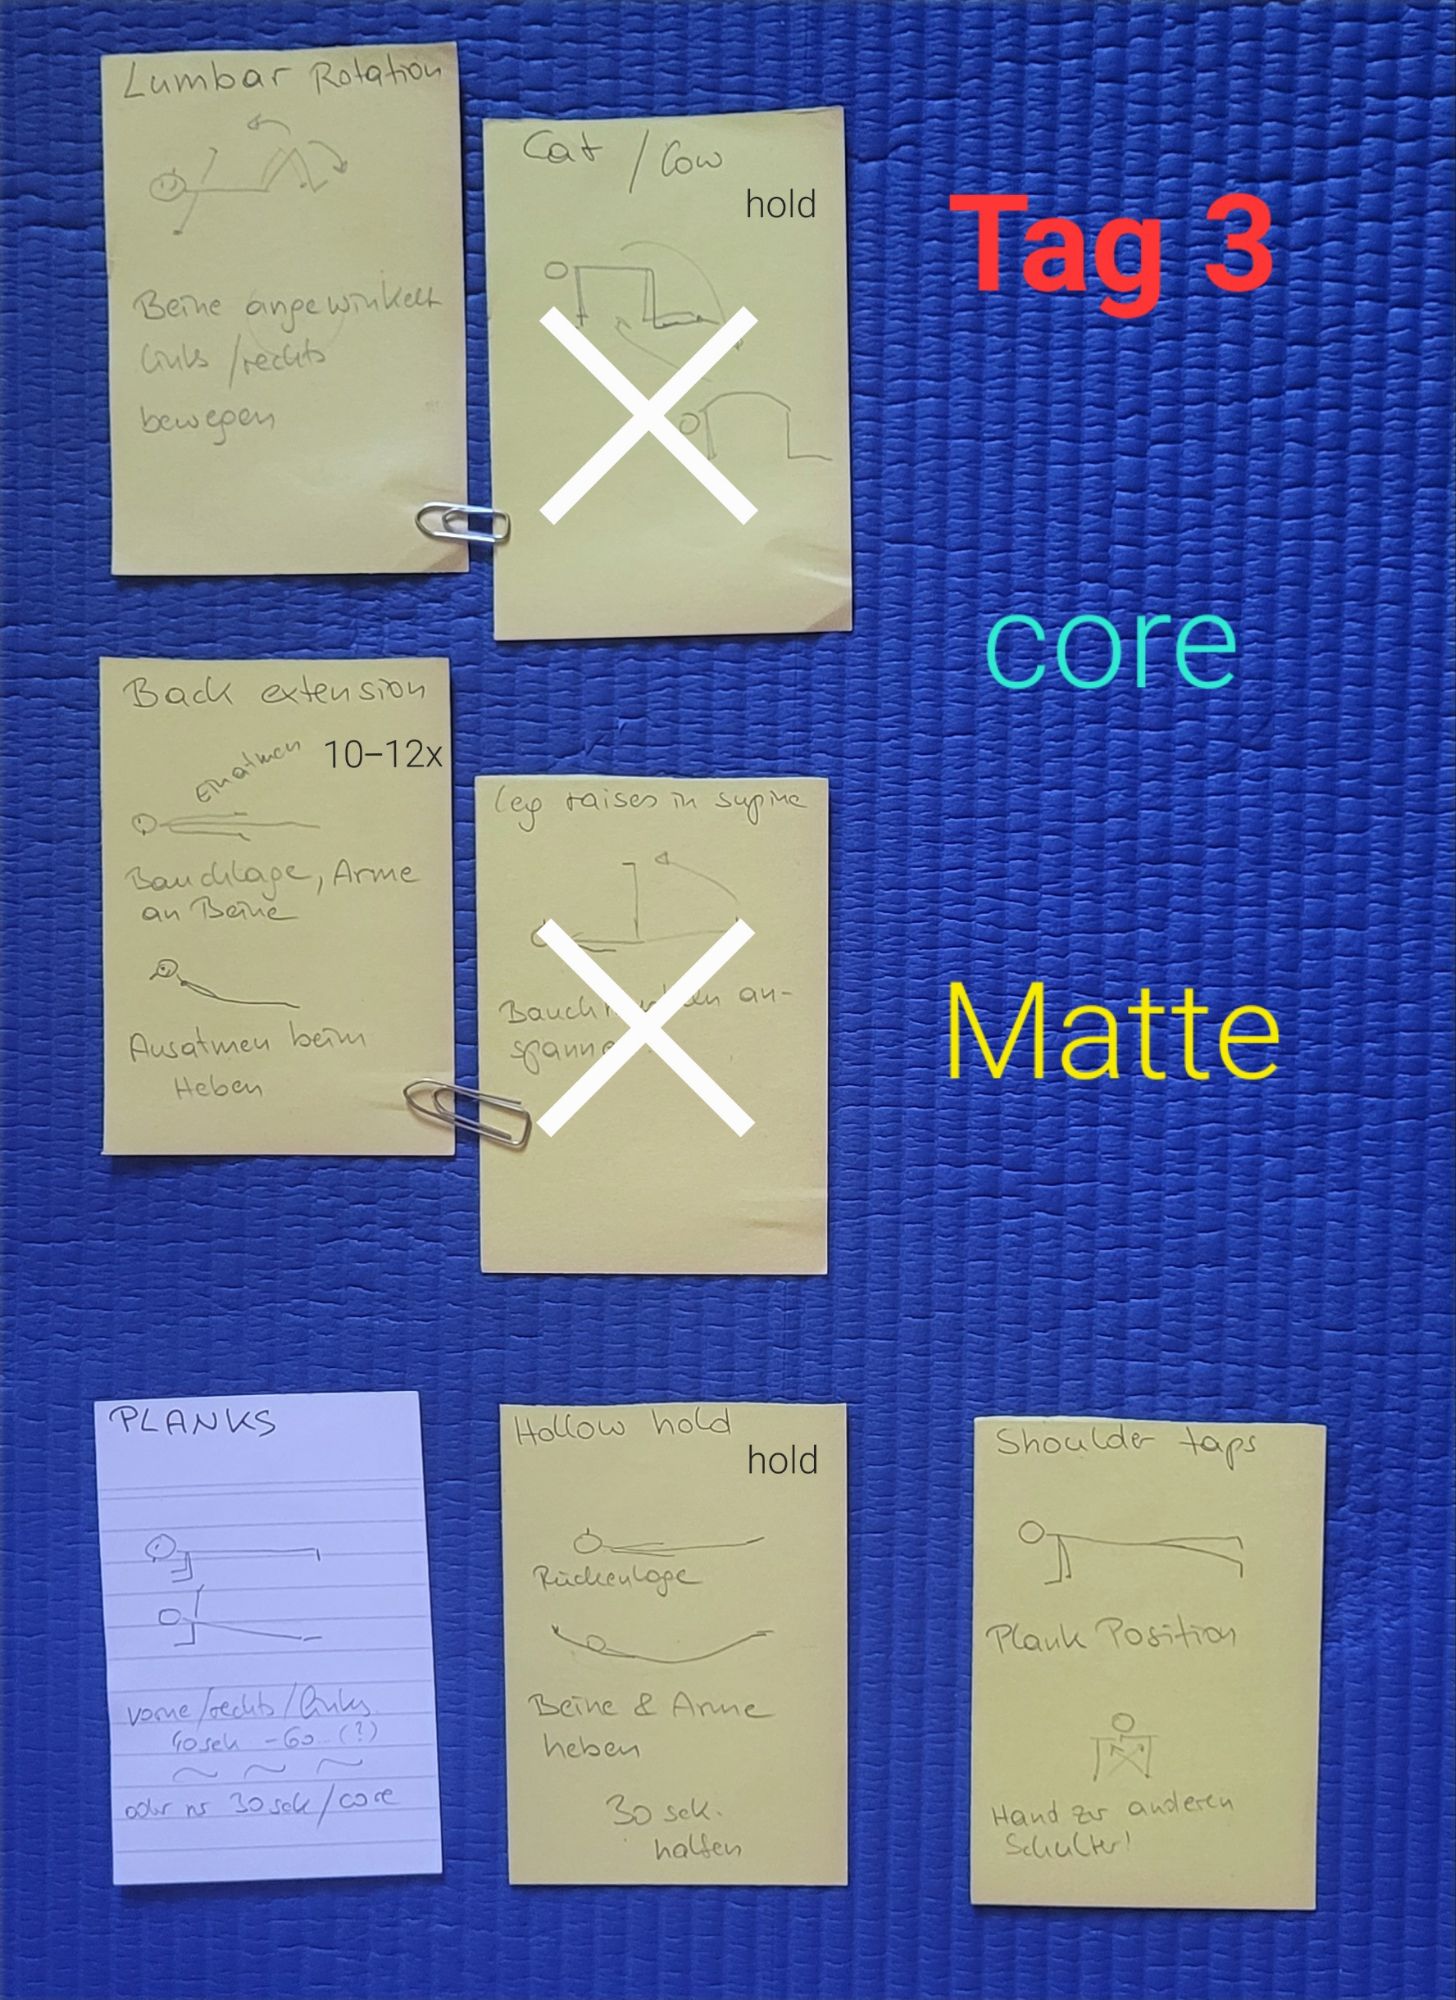 Lumbar Rotation
Beine angewinkelt
links / rechts
bewegen
Cat / Cow
hold
Tag 3
core
Matte
Back extension
Einatmen
10–12x
Bauchlage, Arme
an Beine
Ausatmen beim
Heben
leg raises in supine
Bauch an-
spanne
PLANKS
vorne/rechts/links
40sek - 60 (?)
oder 30 sek/core
Hollow hold
hold
Rückenlage
Beine & Arme
heben
30 sek.
halten
Shoulder taps
Plank Position
Hand zur anderen
Schulter!